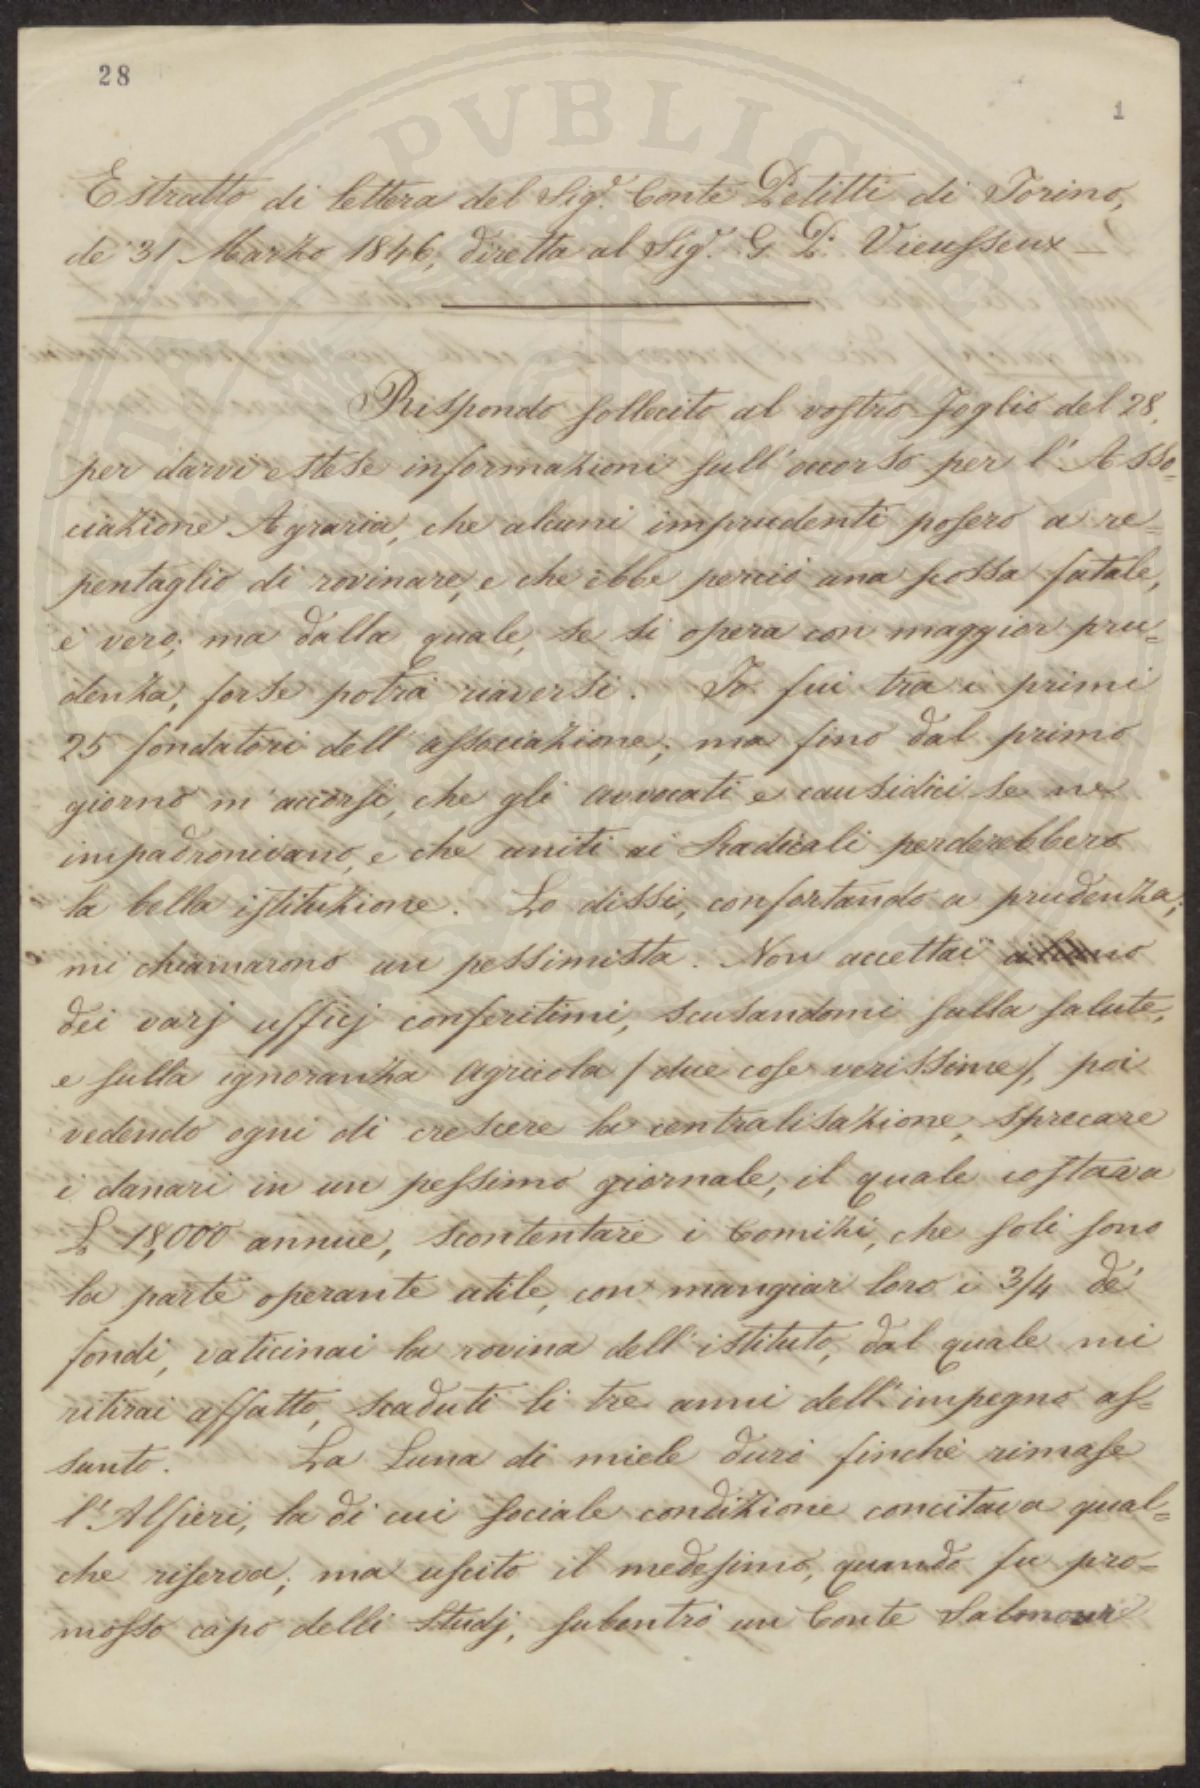 28
1
Estratto di lettera del Sigr. Conte Petitti di Torino,
de' 31 Marzo 1846, diretta al Sigr. G. P. Vieusseux —
Rispondo sollecito al vostro foglio del 28,
per darvi estese informazioni sull'occorso per l'Asso=
ciazione Agraria, che alcuni imprudenti posero a re=
pentaglio di rovinare, e che ebbe perciò una scossa fatale,
è vero; ma dalla quale, se si opera con maggior pru=
denza, forse potrà riaversi. Io fui tra i primi
25 fondatori dell'associazione; ma fino dal primo
giorno m'accorsi, che gli avvocati e causidici se ne
impadronivano, e che uniti ai Radicali perderebbero
la bella istituzione. Lo dissi, confortando a prudenza;
mi chiamarono un pessimista. Non accettai
dei varj ufficj conferitimi, scusandomi sulla salute,
e sulla ignoranza agricola / due cose verissime /, poi
vedendo ogni dì crescere la centralisazione, sprecare
i danari in un pessimo giornale, il quale costava
L 18,000 annue, scontentare i Comizi, che soli sono
la parte operante utile, con mangiar loro i 3/4 de'
fondi, vaticinai la rovina dell'istituto, dal quale mi
ritirai affatto, scaduti li tre anni dell'impegno as=
sunto. La Luna di miele durò finchè rimase
l'Alfieri, la di cui sociale condizione concitava qual=
che riserva; ma uscito il medesimo, quando fu pro=
mosso capo delli Studj, subentrò un Conte Salmour